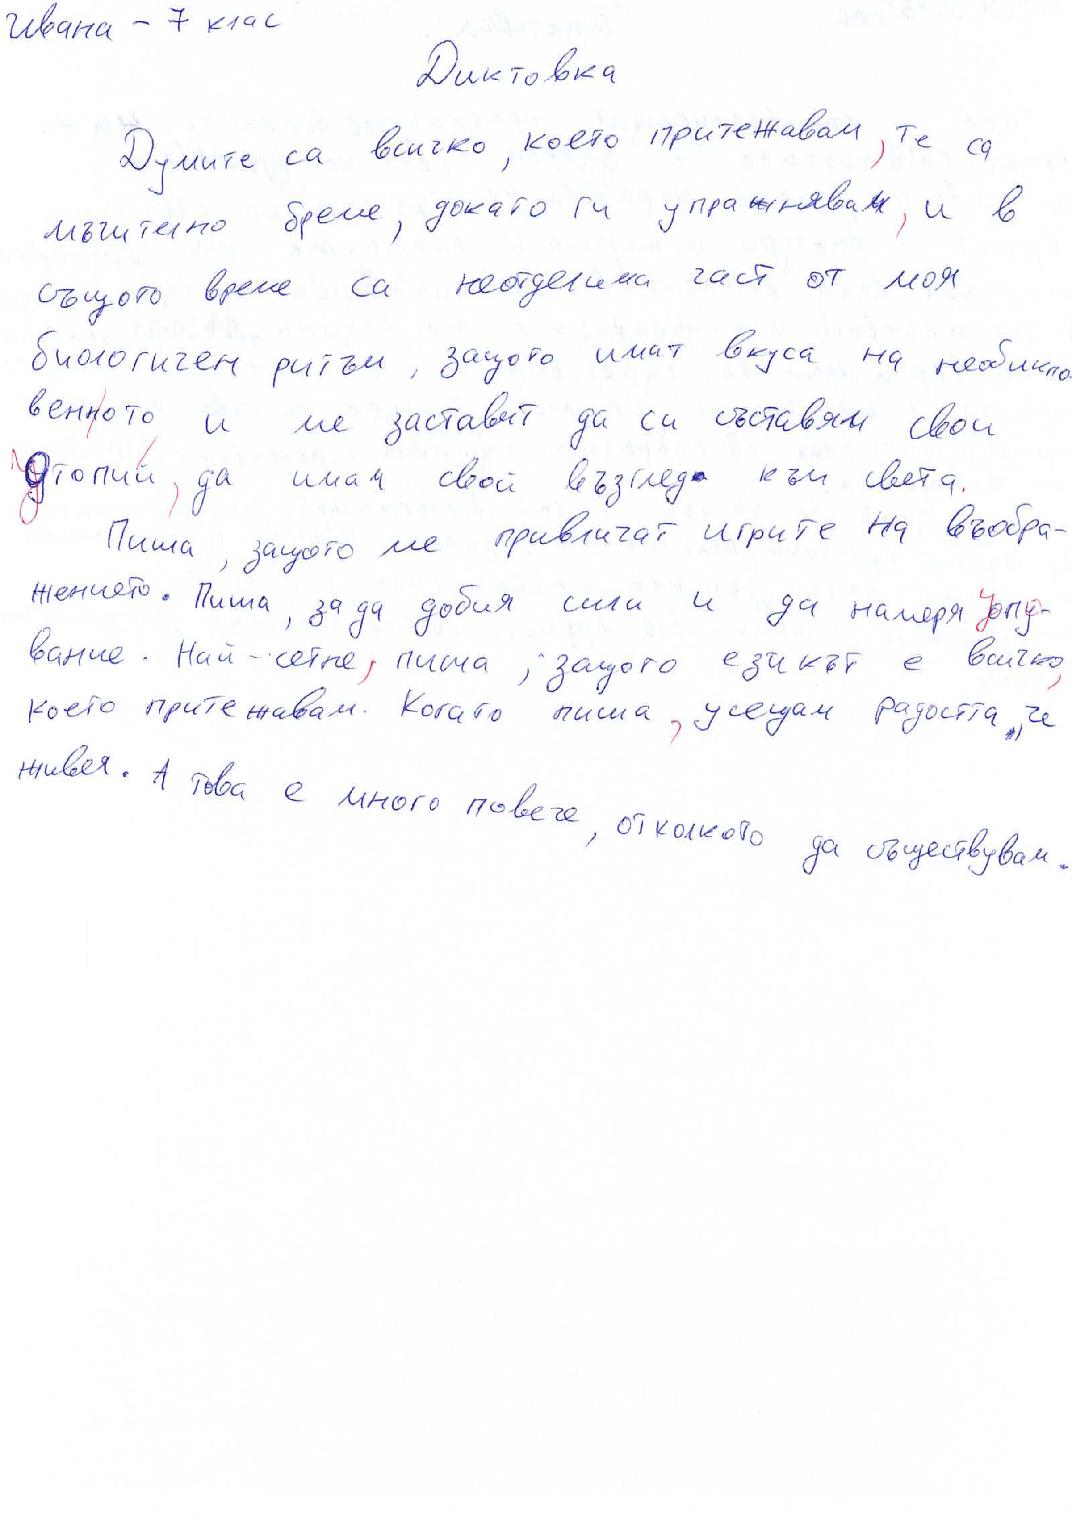 Ивана - 7 клас
Диктовка
Думите са всичко, което притежавам, те са
мъчително бреме, докато ги упражнявам, и в
същото време са неотделима част от моя
биологичен ритъм, защото имат вкуса на необикно
венното и ме заставят да си съставям свои
утопии, да имам свой възглед към света.
Пиша, защото ме привличат игрите на въобра-
жението. Пиша, за да добия сили и да намеря упу-
вание. Най-сетне, пиша, защото езикът е всичко,
което притежавам. Когато пиша, усещам радостта, че
живея. А това е много повече, отколкото да съществувам.